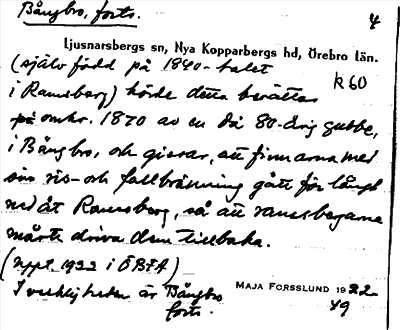 Bångbro, forts. 4
Ljusnarsbergs sn, Nya Kopparbergs hd, Örebro län.
(själv född på 1840-talet
K60
i Ramsberg) hörde detta berättas
på omkr. 1870 av en då 80-årig gubbe,
i Bångbro, och att finnarna med
sin ris- och fallbränning gått för långt
nedåt Ramsberg, så att ramsbergarna
måste driva dem tillbaka.
(Uppt. 1922 i ÖBFA)
I verkligheten är Bångbro
forts.
MAJA FORSSLUND 1922
49